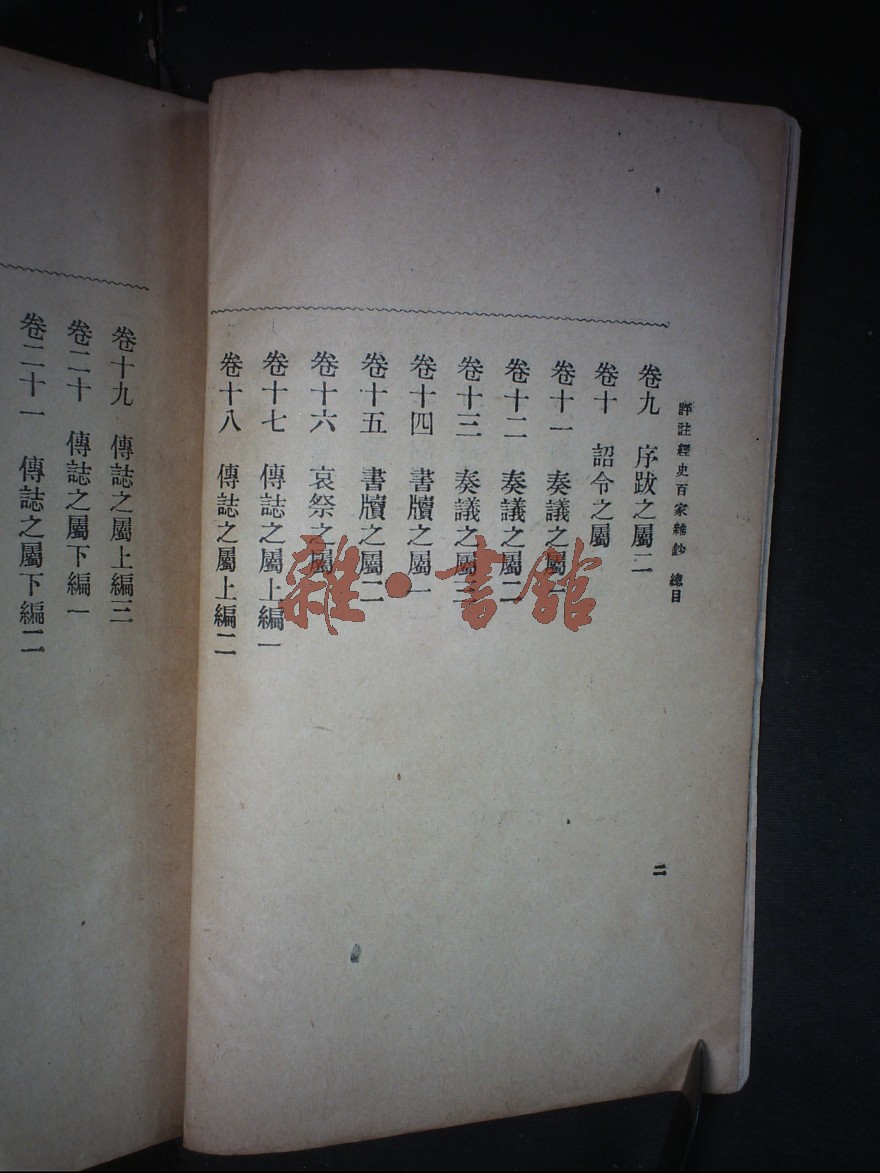 評註經史百家雜鈔 總目
卷九 序跋之屬二
卷十 詔令之屬
卷十一 奏議之屬一
卷十二 奏議之屬二
卷十三 奏議之屬三
卷十四 書牘之屬一
卷十五 書牘之屬二
卷十六 哀祭之屬
卷十七 傳誌之屬上編一
卷十八 傳誌之屬上編二
二
卷十九 傳誌之屬上編三
卷二十 傳誌之屬下編一
卷二十一 傳誌之屬下編二
雜·書館